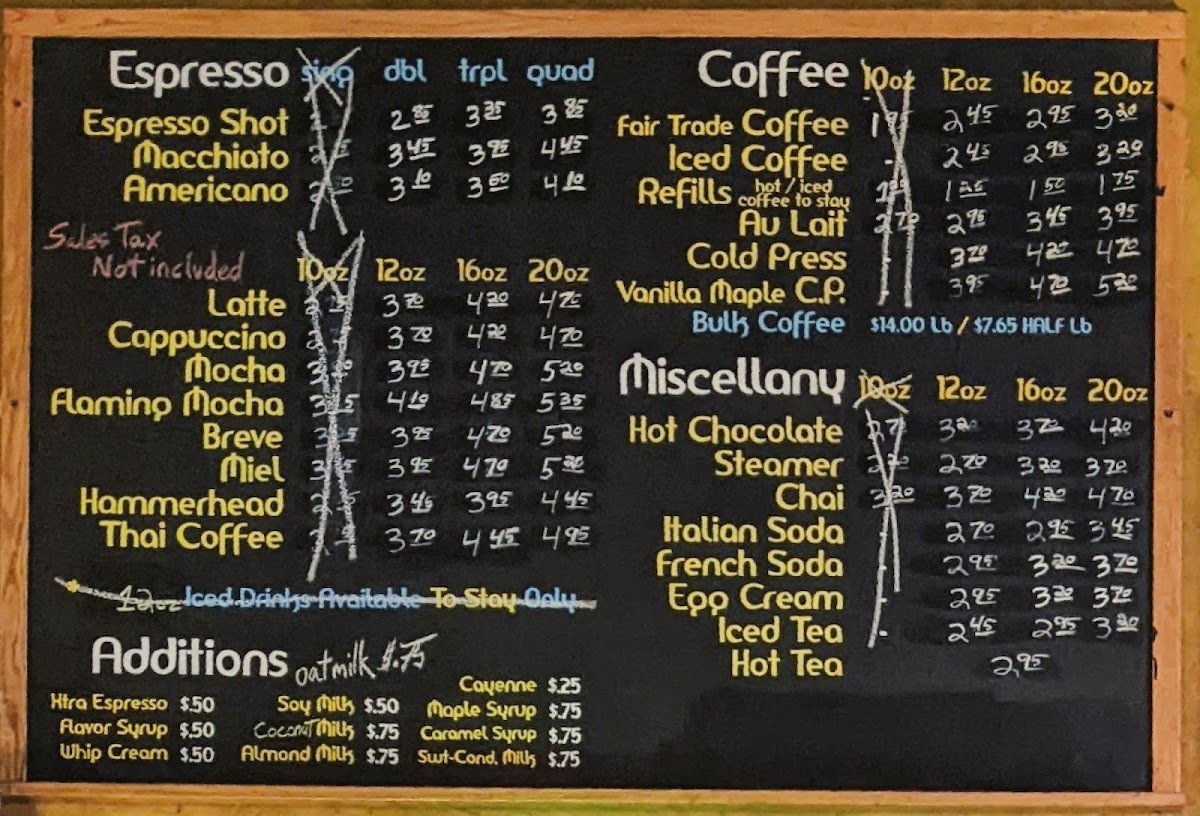 Espresso sing dbl trpl quad
Espresso Shot 2.85 3.35 3.85
Macchiato 3.45 3.95 4.45
Americano 3.10 3.60 4.10
Sales Tax
Not included
10oz 12oz 16oz 20oz
Latte 3.70 4.20 4.70
Cappuccino 3.70 4.20 4.70
Mocha 3.95 4.70 5.20
Flaming Mocha 4.10 4.85 5.35
Breve 3.95 4.70 5.20
Miel 3.95 4.70 5.20
Hammerhead 3.45 3.95 4.45
Thai Coffee 3.70 4.45 4.95
12oz Iced Drinks Available To Stay Only
Additions oatmilk $.75
Xtra Espresso $.50
Flavor Syrup $.50
Whip Cream $.50
Soy Milk $.50
Coconut Milk $.75
Almond Milk $.75
Cayenne $.25
Maple Syrup $.75
Caramel Syrup $.75
Swt-Cond. Milk $.75
Coffee 10oz 12oz 16oz 20oz
Fair Trade Coffee 1.95 2.45 2.95 3.20
Iced Coffee - 2.45 2.95 3.20
Refills hot / iced coffee to stay 1.25 1.50 1.75
Au Lait 2.70 2.95 3.45 3.95
Cold Press - 3.70 4.20 4.70
Vanilla Maple C.P. - 3.95 4.70 5.20
Bulk Coffee $14.00 Lb / $7.65 HALF Lb
Miscellany 10oz 12oz 16oz 20oz
Hot Chocolate 2.70 3.20 3.70 4.20
Steamer 2.20 2.70 3.20 3.70
Chai 3.20 3.70 4.20 4.70
Italian Soda - 2.70 2.95 3.45
French Soda - 2.95 3.20 3.70
Egg Cream - 2.95 3.20 3.70
Iced Tea - 2.45 2.95 3.20
Hot Tea 2.95